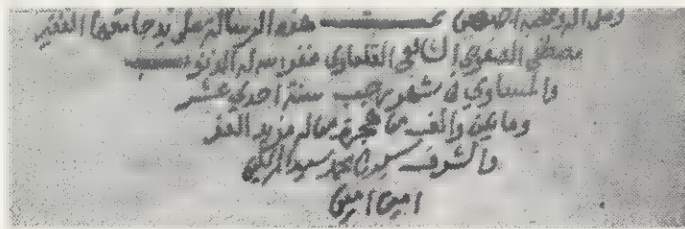 وعلى اله وصحبه اجمعين تمت هذه الرسالة على يد جامعها الفقير
مصطفى الصفوي الشافعي القلعاوي غفر الله له الذنوب
والمساوي في شهر رجب سنة احدي عشر
وما يتين والف من هجرة من له مزيد العز
والشرف سيدنا محمد سيد
امين امين